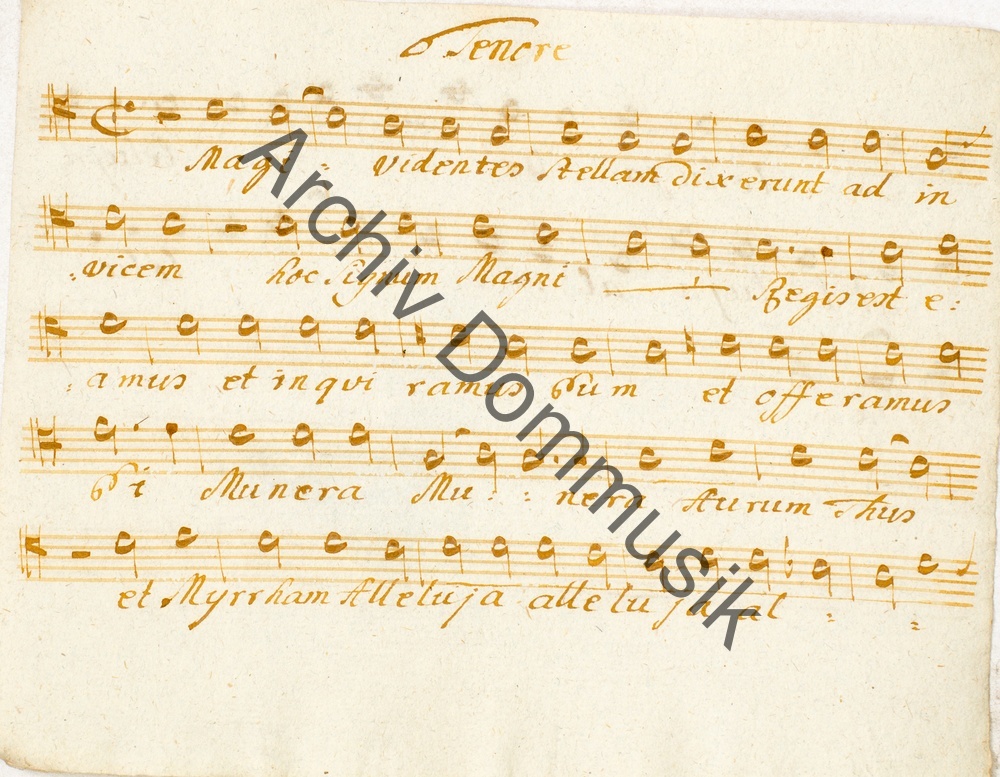 Tenore
Magi videntes Stellam dixerunt ad in
vicem hoc Signum Magni Regis est e:
amus et inqui ramus Eum et offeramus
Ei Munera Mu: : nera Aurum Thus
et Myrrham Alleluja alleluja al
Archiv Dommusik